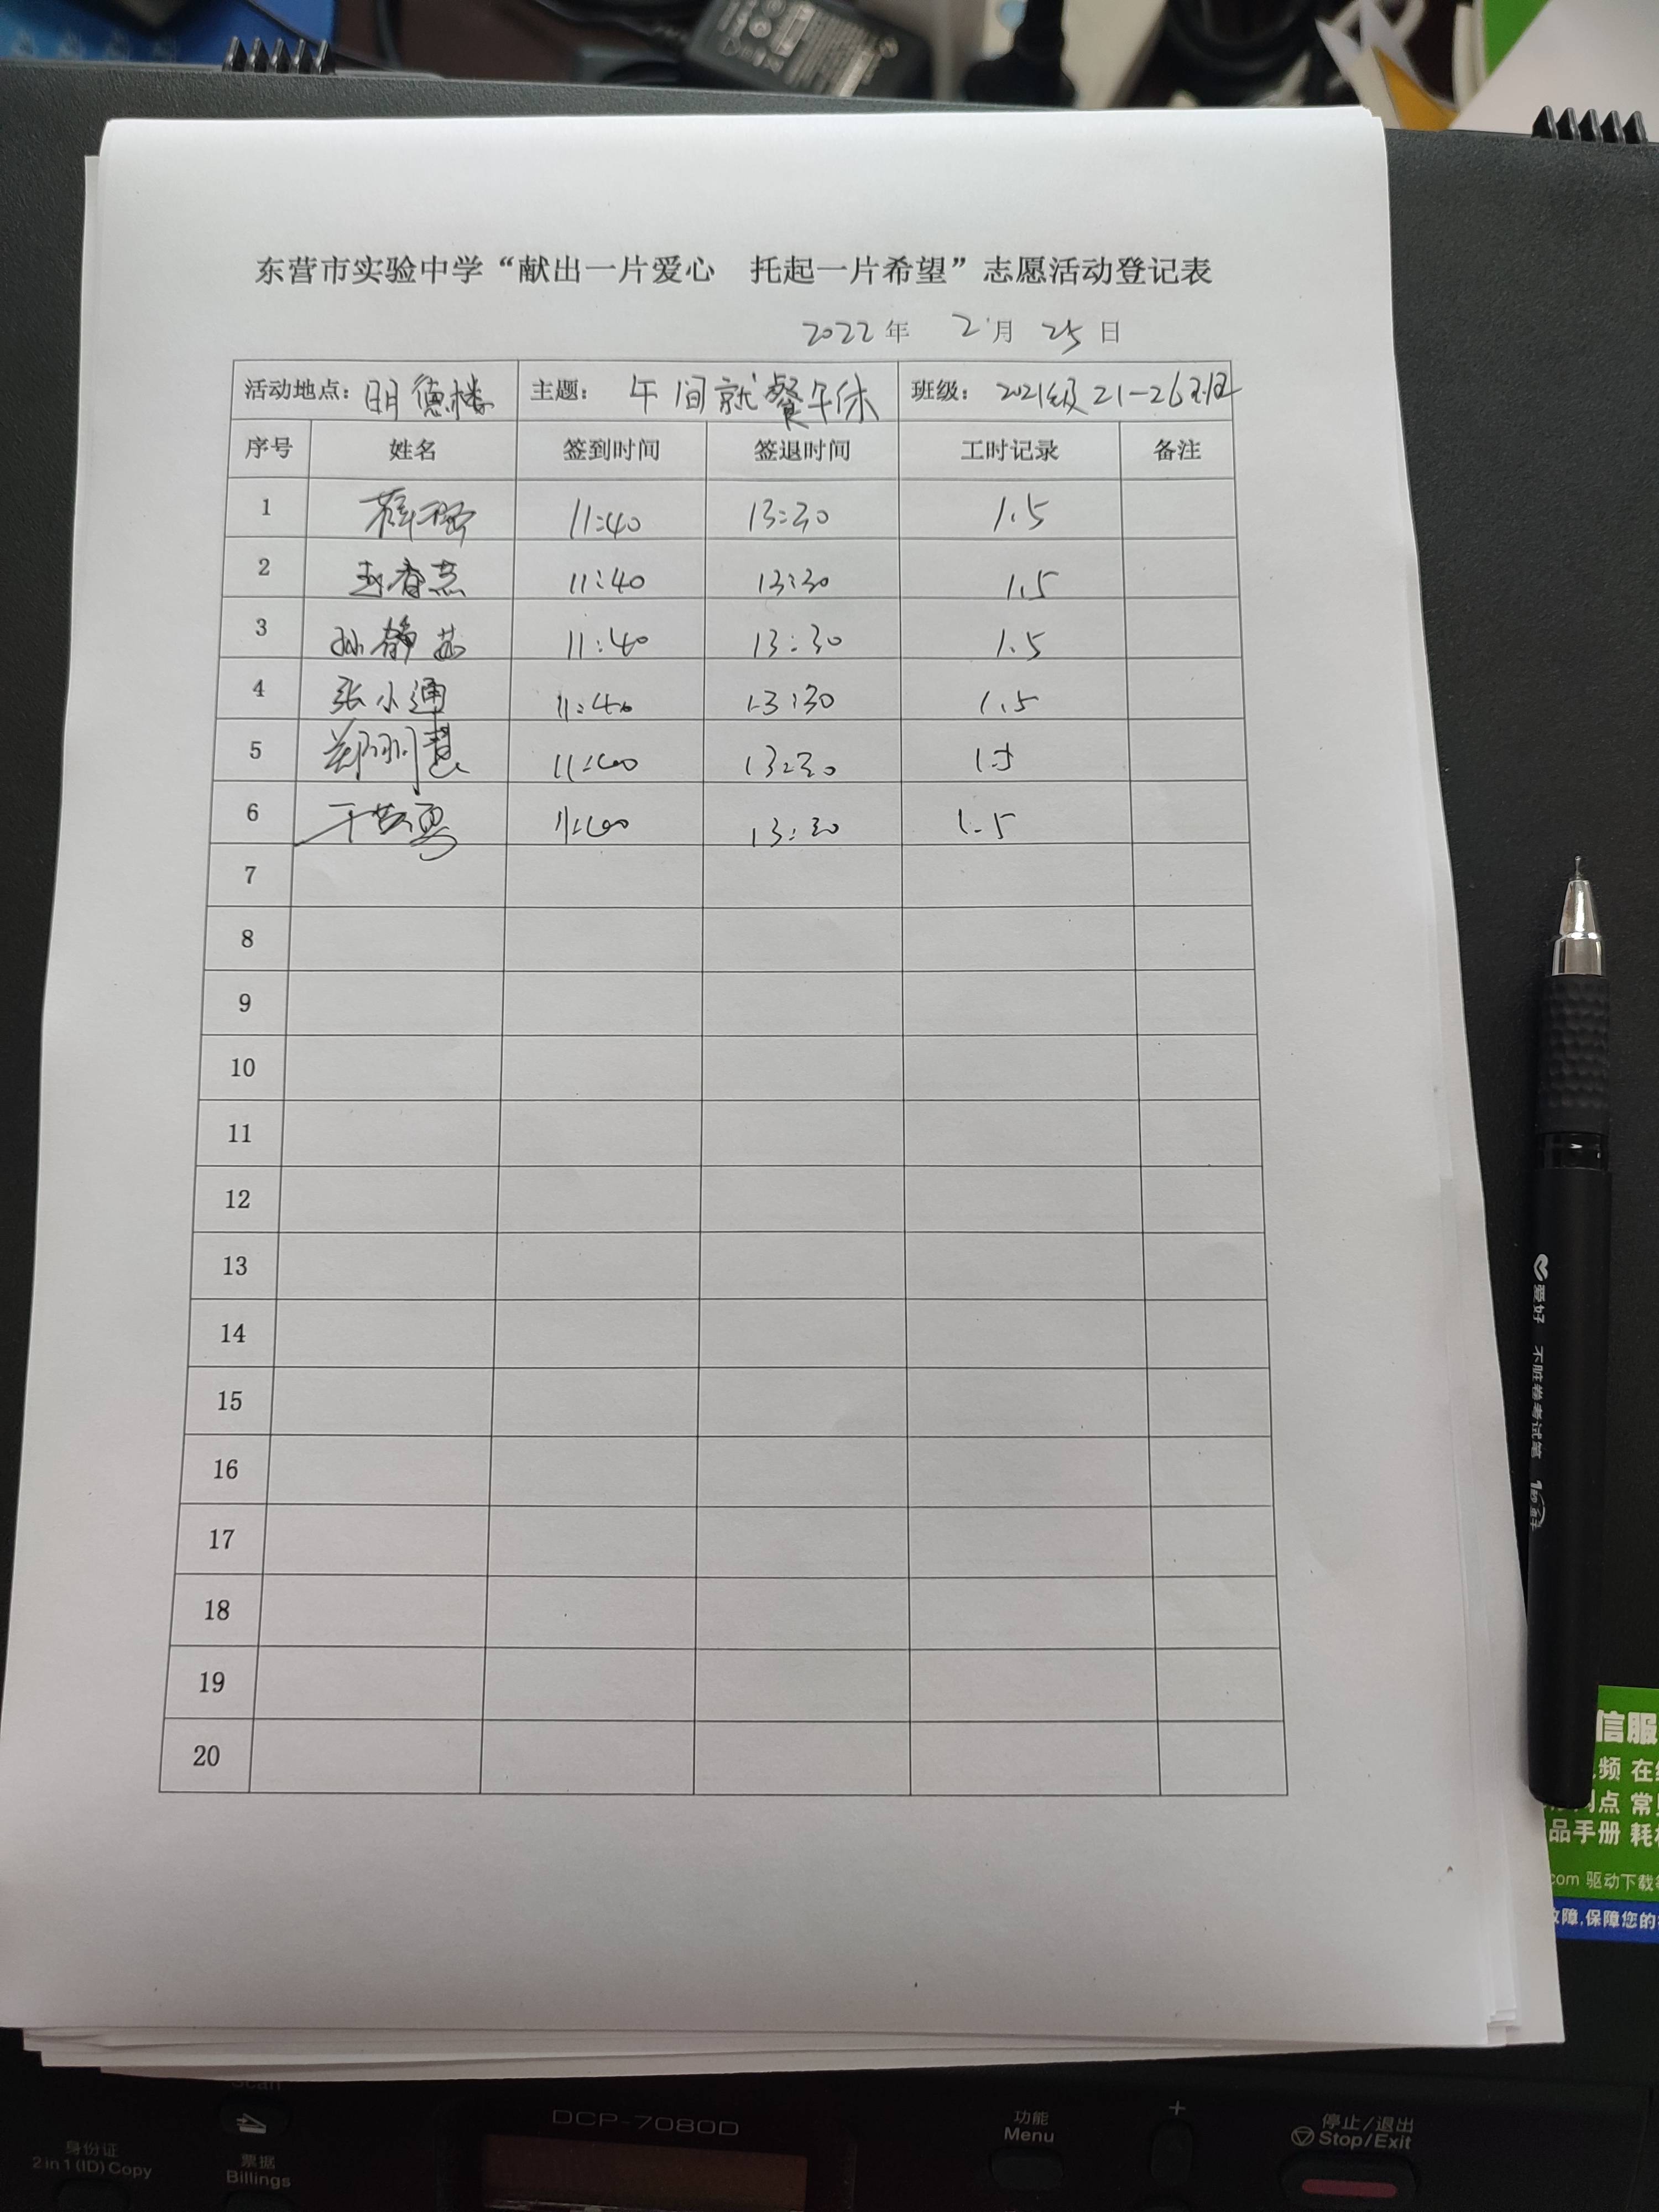 东营市实验中学“献出一片爱心 托起一片希望”志愿活动登记表
2022年 2月 25日
活动地点: 明德楼 主题: 午间就餐午休 班级: 2021级21-26班
序号 姓名 签到时间 签退时间 工时记录 备注
1 11:40 13:30 1.5
2 11:40 13:30 1.5
3 孙静 11:40 13:30 1.5
4 张小通 11:40 13:30 1.5
5 郑 慧 11:40 13:30 1.5
6 11:40 13:30 1.5
7
8
9
10
11
12
13
14
15
16
17
18
19
20
爱好 不脏卷考试笔
信服
频 在
点 常
品手册 耗
com 驱动下载
障,保障您的
Scan
DCP-7080D
身份证
2 in 1 (ID) Copy
票据
Billings
功能
Menu
+
停止/退出
Stop/Exit